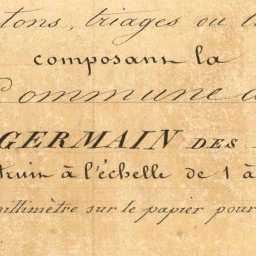 tons, triages ou l
composant la
Commune d
GERMAIN DES
truin à l'échelle de 1 à
millimètre sur le papier pour